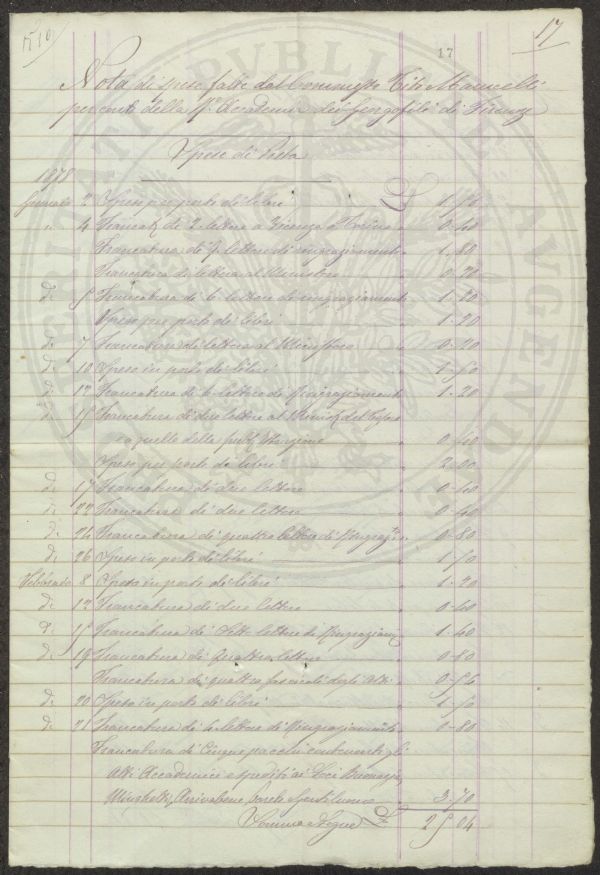 17
17
Nota di spese fatte dal Commesso Tito Marucelli
per conto della R. Accademia dei Georgofili di Firenze
Spese di Posta
1878
Gennaio 2 Spese per porto di libri £ 1,76
" 4 Francat. di 2 lettere a Vicenza e Torino 0-40
Francatura di 9 lettere di ringraziamento 1,80
Francatura di lettera al Ministero 0-20
di 5 Francatura di 6 lettere di ringraziamento 1-20
Spese per porto di libri 1-20
di 7 Francatura di lettera al 0-20
di 10 Spese in porto di libri
di 12 Francatura di 6 lettere di Ringraziamento 1-20
di 15 Francatura di due lettere al del
e a quello della 0-40
Spese per porto di libri 2-00
di 17 Francatura di due lettere 0-40
di 22 Francatura di due lettere 0-40
di 24 Francatura di quattro lettere di Ringraz. 0-80
di 26 Spese in porto di libri
Febbraio 8 Spese in porto di libri 1-20
di 12 Francatura di due lettere 0-40
di 15 Francatura di Sette lettere di Ringraziam. 1-40
di 19 Francatura di Quattro lettere 0-80
Francatura di quattro fascicoli degli Atti 0-56
di 20 Spese in porto di libri
di 21 Francatura di 4 lettere di Ringraziamento 0-80
Francatura di Cinque pacchi contenenti gli
Atti Accademici e spediti ai Soci
Arrivabene, Conte 3-70
Somma Segue £ 25 04
VERITATI REI PUBLICAE AUGENDAE